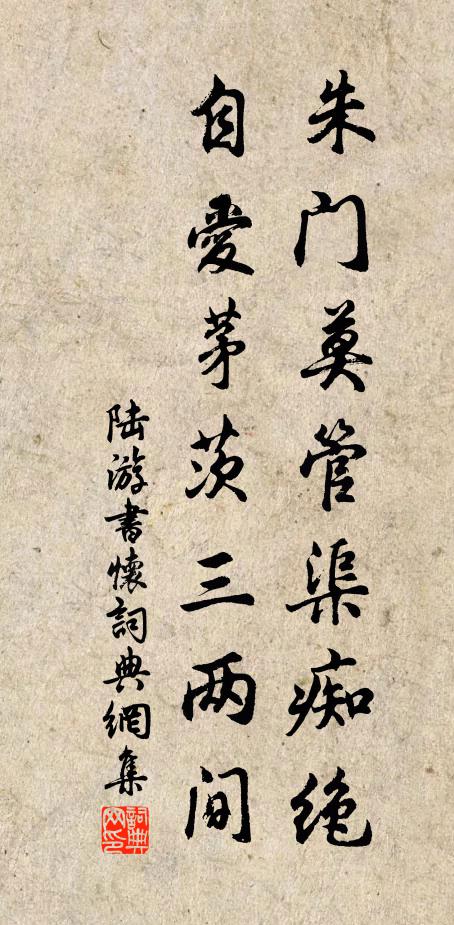 朱门莫管渠痴绝
自爱茅茨三两间
陆游书懷詞典網集
詞典网印